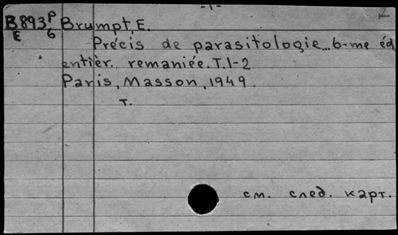 -1-
B893 P Brumpt, E.
E 6
Précis de parasitologie... 6-me éd.
entièr. remaniée. T.1-2
Paris, Masson, 1949.
т.
см. след. карт.